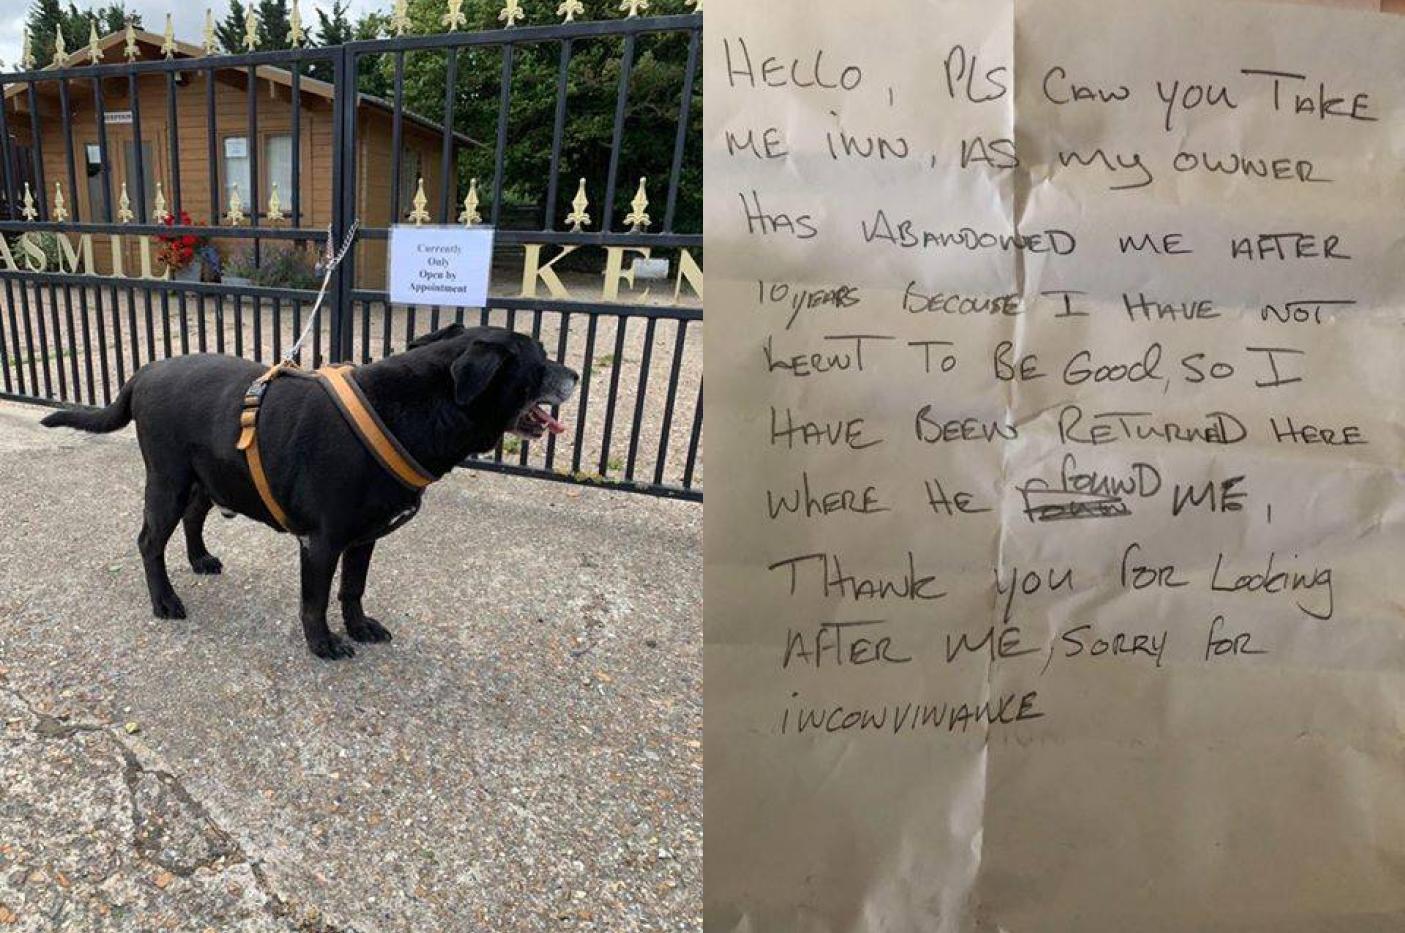 RECEPTION
ASMIL KEN
Currently
Only
Open by
Appointment
HELLO, PLS CAN YOU TAKE
ME iNN, AS my OWNER
HAS ABANDONED ME AFTER
10 YEARS BECOUSE I HAVE NOT
LERNT TO BE GOOd, SO I
HAVE BEEN RETURNED HERE
WHERE HE found ME,
THANK YOU FOR Looking
AFTER ME, SORRY FOR
iNCONViNANCE